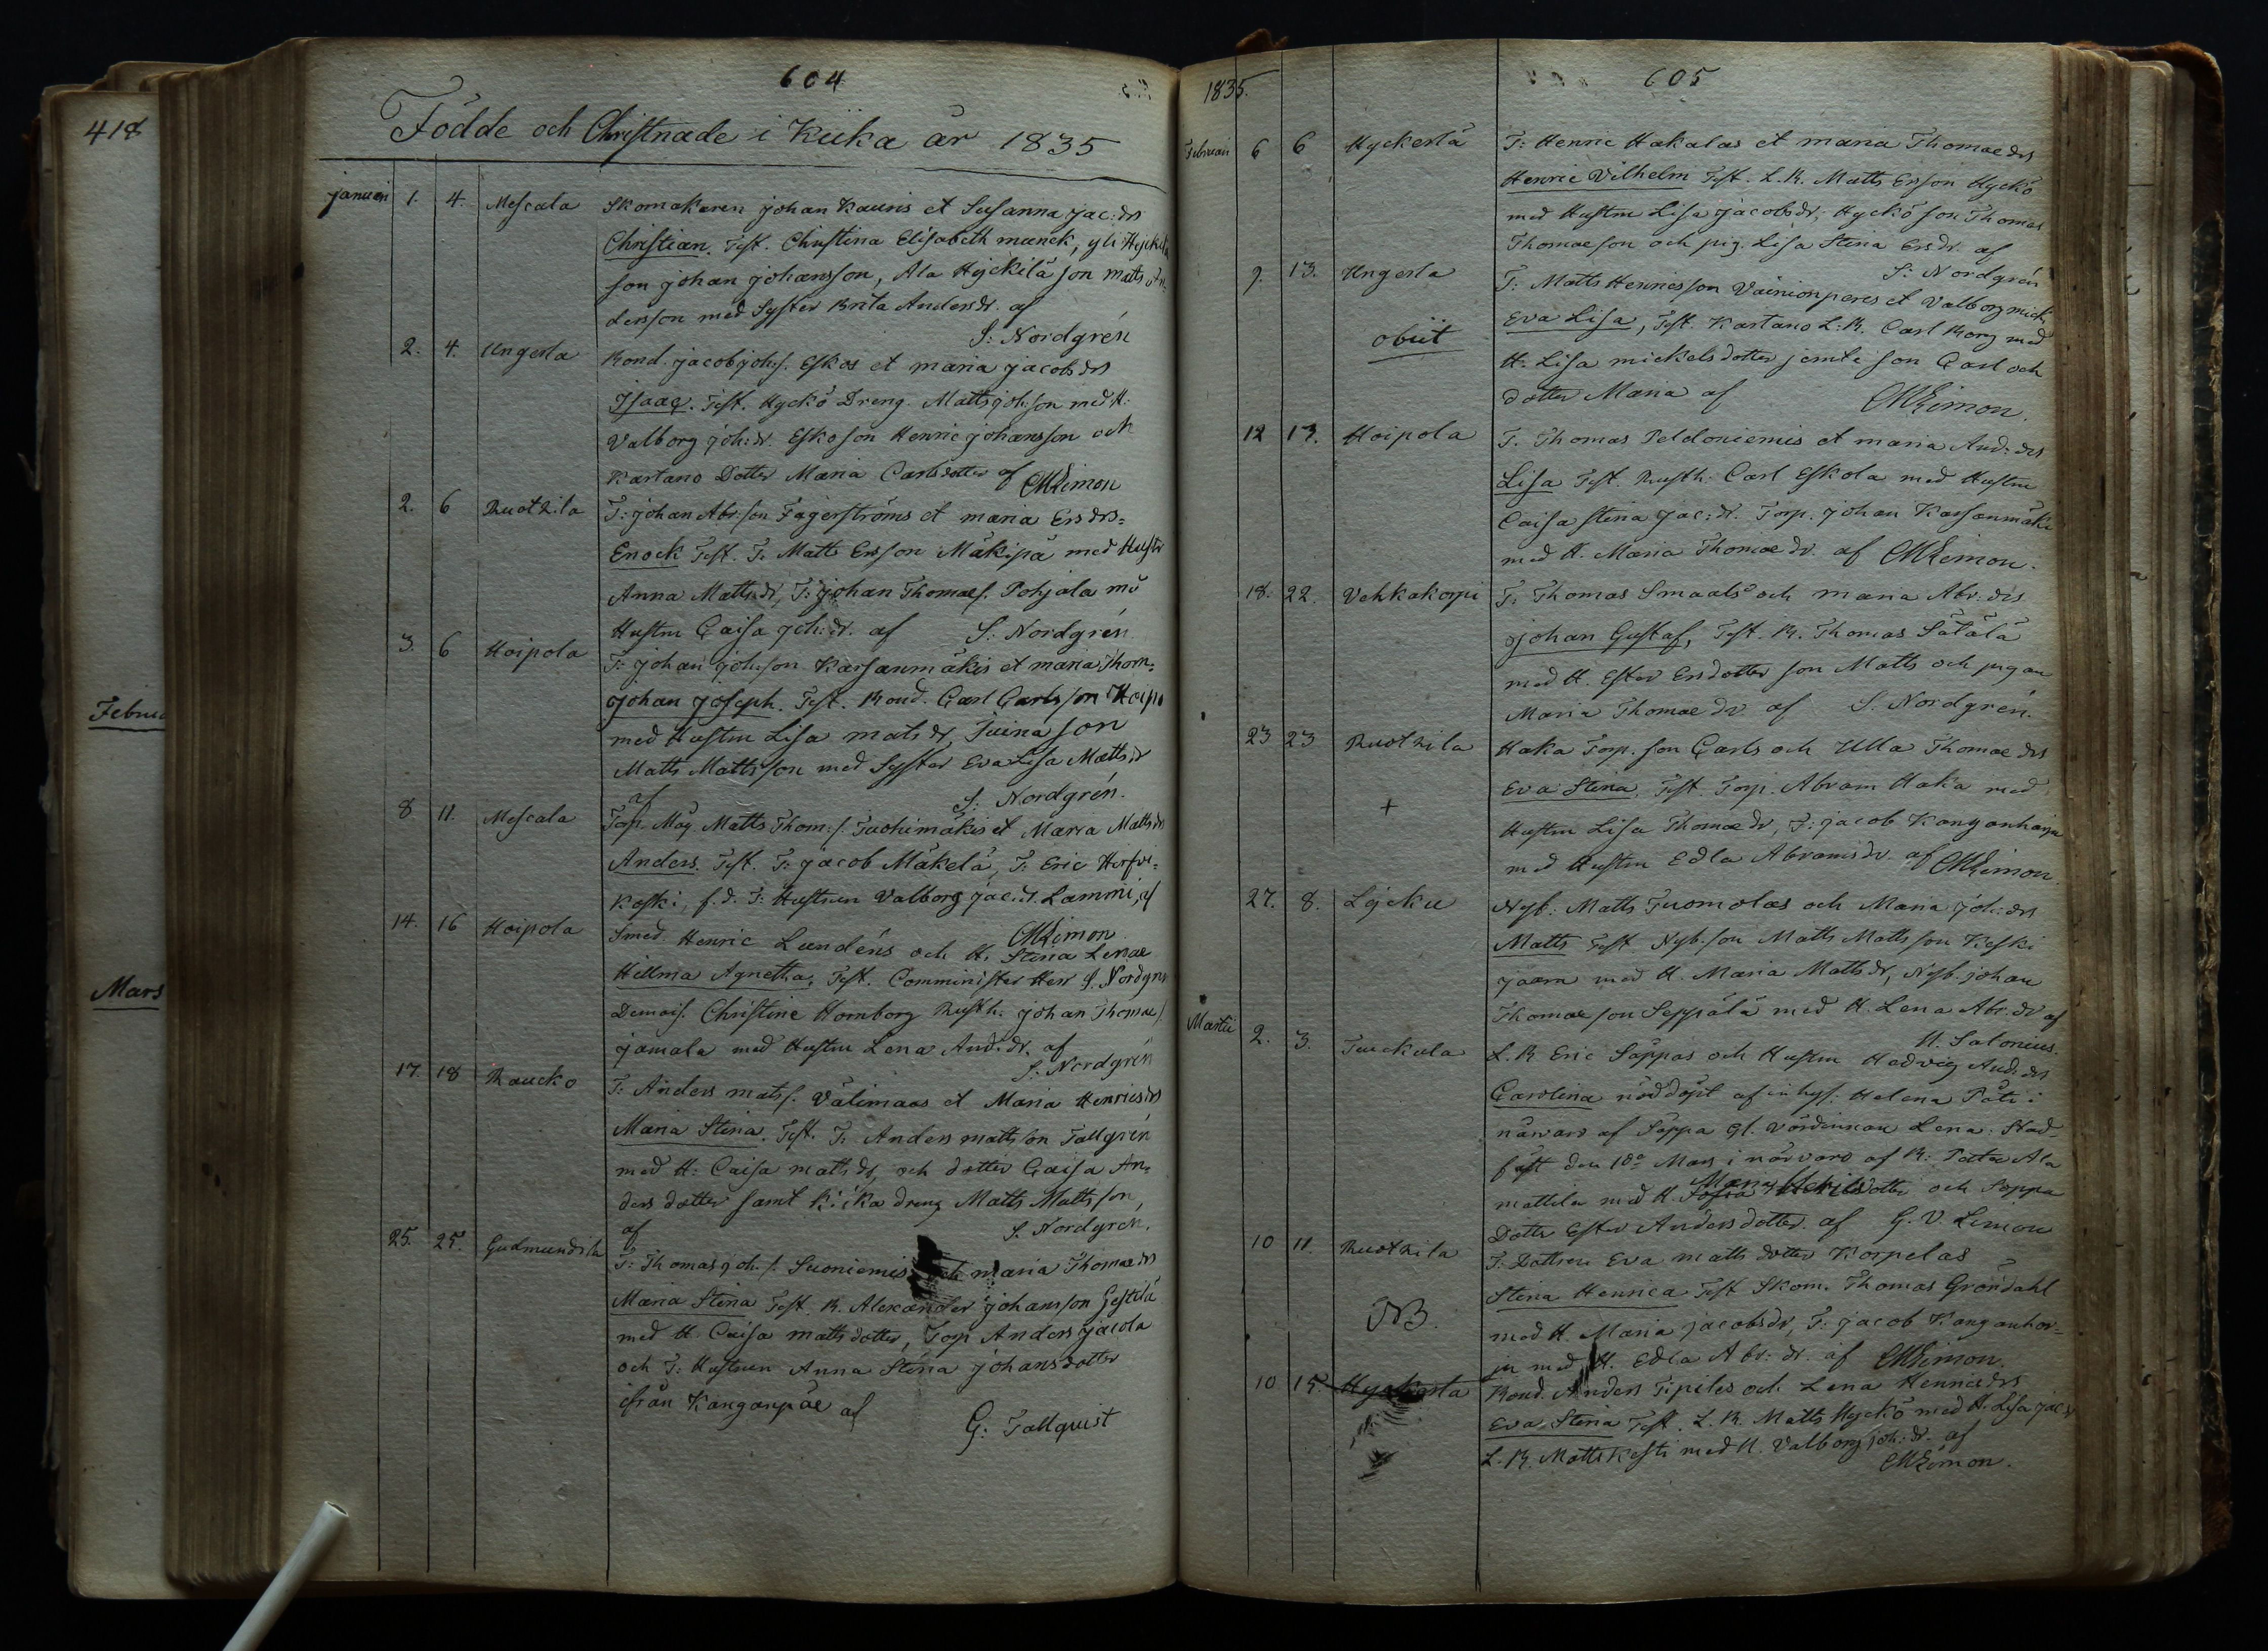 418
Februa
Mars
604
Födde och Christnade i Kiika år 1835
januari 1. 4. Mescala Skomakaren johan Kauris et Susanna jac:drs
Christian. Test. Christina Elisabeth munck, yli Hyckilä
son johan johansson, Ala Hyckilä son matts An-
dersson med Syster Brita Andersdr. af
S: Nordgrén
2. 4. Ungerla Bond. jacob joh:s. Eskos et maria jacobs drs
Isaac. Test. Hyckö Dreng. Matts joh:son med H:
Valborg joh:dr. Esko son Henric johansson och
Kartano Dotter Maria Carlsdotter af CMLimon
2. 6 Ruotzila T: johan Abr:son Fagerströms et maria Ersdrs-
Enock Test. T: Matts Ersson Mäkipä med Hustr
Anna Mattsdr, T: johan Thomaes. Pohjala md
Hustru Caisa joh:dr. af S: Nordgrén
3. 6 Hoipola T: johan joh:son Karsanmäkis et maria Thom-
johan joseph. Test. Bond. Carl Carlsson Hoipo
med Hustru Lisa matsdr, Tuina son
Matts Mattsson med Syster Eva Lisa Matts dr
af S: Nordgrén.
8 11. Mescala Torp. Måg Matts Thom:s. Tuohimäkis et Maria Mattsdrs
Anders. Test. T: jacob Mäkelä, T: Eric Hirfvi-
koski, f.d. T: Hustrun Valborg jac:dr. Lammi, af
CMLimon
14. 16 Hoipola Smed. Henric Lundéns och H. Stina Lenae
Hillma Agnetha, Test. Comminister Herr S. Nordgrn
Demois. Christine Homborg Rusth. johan Thomaes.
jamala med Hustru Lena And:dr. af
S: Nordgrén
17. 18 Raucko T: Anders mats. Välimaas et Maria Henricsdrs
Maria Stina. Test. T: Anders mattsson Tallgrén
med H: Caisa mattsdr, och dotter Caisa An-
ders dotter samt Kiika dreng Matts Mattsson,
af S. Nordgrén.
25. 25. Gudmundsla T: Thomas joh:s. Suoniemis och maria Thomaedrs
Maria Stina Test. B. Alexander johansson Gestilä
med H. Caisa mattsdotter, Torp Anders jacola
och T: Hustrun Anna Stina johansdotter
ifrån Kanganpäe af
G: Tallquist
1835.
605
Februari 6 6 Hyckerlä T: Henric Hakalas et maria Thomae drs
Henric Vilhelm Test. L.B. Matts Ersson Hyckö
med Hustru Lisa jacobsdr, Hyckö son Thomas
Thomaeson och pig. Lisa Stina Ersdr. af
S: Nordgrén
9. 13. Ungerla T: Matts Henricsson Vainionperes et Valborg mick
obiit Eva Lisa, Test. Kartano L:B. Carl Borg med
H. Lisa mickelsdotter jemte son Carl och
dotter Maria af CMLimon.
12 17. Hoipola T. Thomas Peldoniemis et maria And:drs
Lisa Test. Rusth: Carl Eskola med Hustru
Caisa stina jac:dr. Torp. johan Karsanmäki
med H. Maria Thomae dr. af CMLimon.
18. 22. Vehkakorpi T: Thomas Smaals och maria Abr:drs
johan Gustaf, Test. B. Thomas Sätälä
med H. Ester Ersdotter son Matts och pigan
Maria Thomae dr. af S. Nordgrén.
23 23 Ruotzila Haka Torp. son Carls och Ulla Thomae drs
+ Eva Stina. Test. Torp. Abram Haka med
Hustru Lisa Thomae dr, T: jacob Kanganharju
med Hustru Edla Abramsdr. af CMLimon.
27. 8. Lijcku Nyb: Matts Tuomolas och Maria joh:drs
Matts Test Nyb. son Matts Mattsson Keski
jaara med H. Maria Mattsdr, Nyb. johan
Thomaeson Seppälä med H. Lena Abr.dr af
H. Salonius.
Martii 2. 3. Turckula L.B Eric Soppas och Hustru Hedvig And:drs
Carolina nöddöpt af inhys: Helena Påti i
närvaro af Soppa gl. värdinnan Lena. Stad-
fäst den 18de Mars i närvaro af B: Peter Ala
mattila med H. Sofia Maria Henricsdotter och Soppa
Dotter Ester Andersdotter. af G. V. Limon
10 11. Ruotzila T. Dottren Eva mattsdotter Korpelas
Stina Henrica Test Skom. Thomas Gröndahl
NB. med H. Maria jacobsdr, T: jacob Kanganhar-
ju med H. Edla Abr:dr. af CMLimon.
10 15. Hyckerla Bond. Anders Pipilis och Lena Henricsdrs
Eva Stina Test. L.B. Matts Hyckö med H. Lisa jac dr
L.B. Matts Kesti med H. Valborg joh:dr. af
CMLimon.